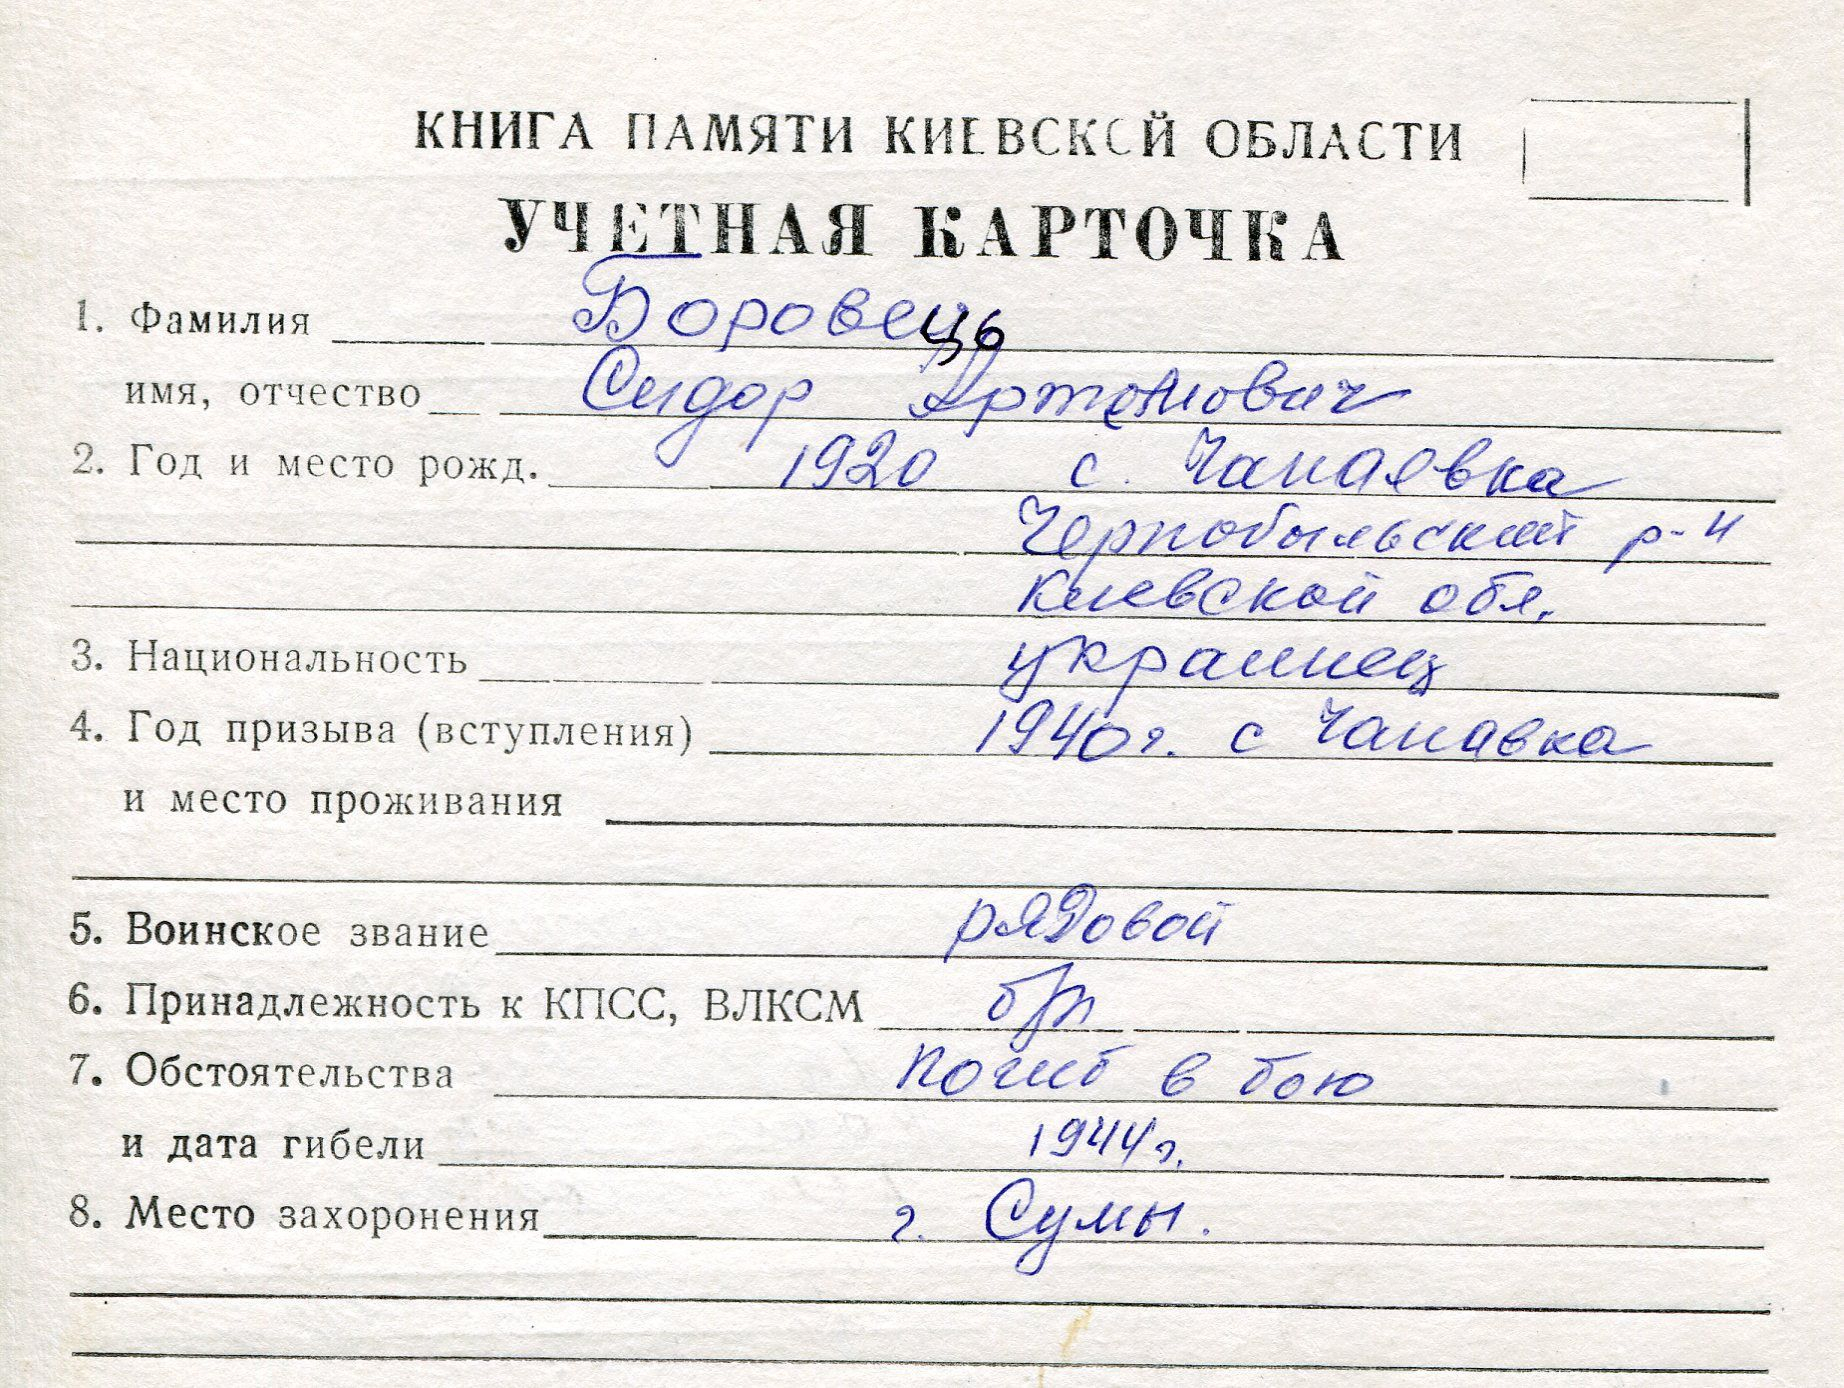 КНИГА ПАМЯТИ КИЕВСКОЙ ОБЛАСТИ
УЧЕТНАЯ КАРТОЧКА
1. Фамилия Боровець
имя, отчество Сидор Артемович
2. Год и место рожд. 1920 с. Чапаевка
Чернобыльский р-н
Киевской обл.
3. Национальность украинец
4. Год призыва (вступления) 1940г. с Чапавка
и место проживания
5. Воинское звание рядовой
6. Принадлежность к КПСС, ВЛКСМ б/п
7. Обстоятельства погиб в бою
и дата гибели 1944г.
8. Место захоронения г. Сумы.